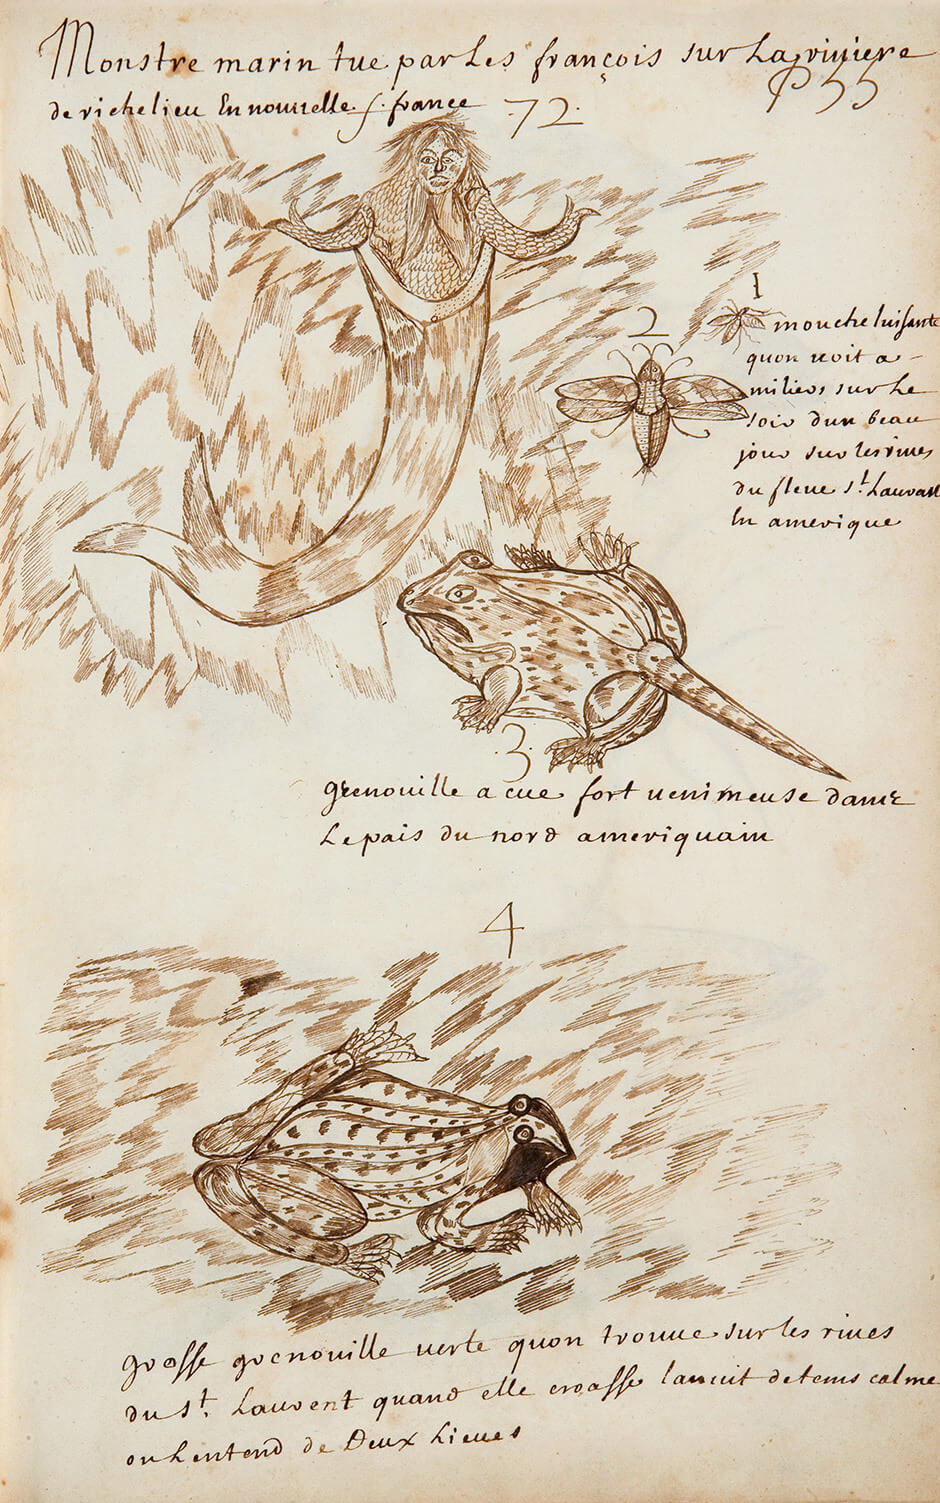 Monstre marin tue par Les françois sur La riviere
P 55
de richelieu En nouvelle f. france 72.
1
2
mouche luisante
quon voit a
milieos sur Le
soir dun beau
jour sur les rives
du fleuve s.t Lauvant
En amerique
3
grenouille a cue fort venimeuse dans
Le pais du nord ameriquain
4
grosse grenouille verte quon trouve sur les rives
du s.t Lauvent quand elle croasse la nuit de tems calme
on Lentend de Deux Lieues